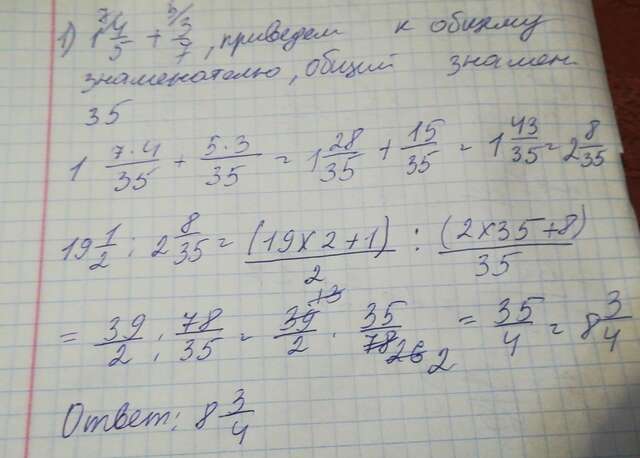 1) 1 4/5 + 3/7, приведем к общему
знаменателю, общий знамен
35
1 7·4/35 + 5·3/35 = 1 28/35 + 15/35 = 1 43/35 = 2 8/35
19 1/2 : 2 8/35 = (19×2+1)/2 : (2×35+8)/35
= 39/2 : 78/35 = 39/2 · 35/78 2 = 35/4 = 8 3/4
Ответ: 8 3/4